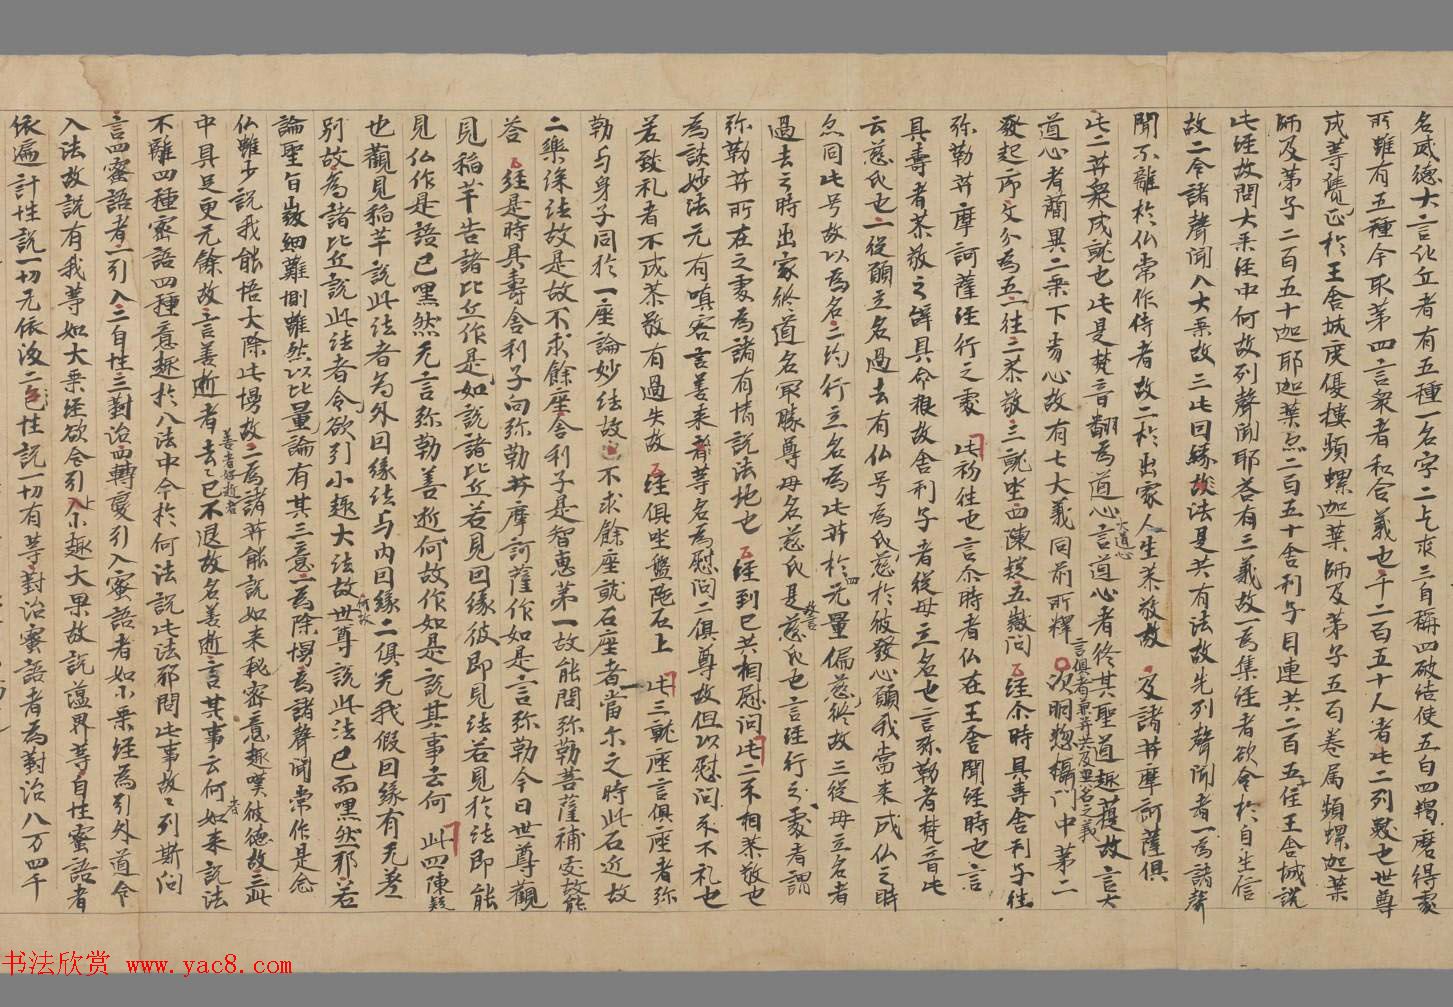 名威德大言比丘者有五種一名字二乞求三自稱四破結使五白四羯磨得處
所雖有五種今取第四言衆者和合義也千二百五十人者此二列數也世尊
成等覺已於王舍城度優樓頻螺迦葉師及弟子五百眷属頻螺迦葉
師及弟子二百五十迦耶迦葉亦二百五十舍利子目連共二百五十住王舍城說
此經故問大乘經中何故列聲聞耶荅有三義故一為集經者欲令於自生信
故二令諸聲聞入大乘故三此回緣故法是共有法故先列聲聞者一為諸聲
聞不離於仏常作侍者故二於出家人生恭敬故 及諸井摩訶薩俱
此二井衆成就也此是梵音翻為道心言道心者終其聖道趣菩提故言大
大道心
道心者簡異二乘下劣心故有七大義同前所釋 次明惣攝門中第二
言俱者兼井共及並名之義
發起序文分為五一往二恭敬三就坐四陳疑五徵問 經尒時具壽舍利子往
弥勒井摩訶薩經行之處 此初往也言尒時者仏在王舍聞經時也言
具壽者恭敬之辭具命根故舍利子者從母立名也言弥勒者梵音此
云慈氏也一從願立名過去有仏号為氏慈於彼發心願我當来成仏之時
亦同此号故以為名二約行立名為此井於四无量偏慈終故三從母立名者
過去之時出家終道名取勝尊母名慈氏是故言慈氏也言經行之處者謂
弥勒井所在之處為諸有情說法地也 經到已共相慰問此二不相恭敬也
為談妙法无有嗔吝言善来者等名為慰問二俱尊故但以慰問不不礼也
若致礼者不成恭敬有過失故 經俱坐盤陁石上 此三就座言俱座者弥
勒与身子同於一座論妙法故不求餘座就石座者當尒之時此石近故
二樂深法故是故不求餘座舍利子是智惠第一故能問弥勒菩薩補處故能
荅 經是時具壽舍利子向弥勒井摩訶薩作如是言弥勒今日世尊觀
見稻芉告諸比丘作是如說諸比丘若見回緣彼即見法若見於法即能
見仏作是語已嘿然无言弥勒善逝何故作如是說其事云何 此四陳疑
也觀見稻芉說此法者為外回緣法与內回緣二俱无我假回緣有无差
別故為諸比丘說此法者令欲引小趣大法故世尊何故說此法已而嘿然耶若
論聖旨㣲細難惻雖然以比量論有其三意一為除慢為諸聲聞常作是念
仏雖少說我能悟大除此慢故二為諸井能說如来秘密意趣嘆彼德故三此
中具足更无餘故言善逝者去去已不退故名善逝言其事云何如来說法
善者好逝者
者
不離四種密語四種意趣於八法中今於何法說此法耶問此事故故列斯問
言四蜜語者一引入二自性三對治四轉變引入蜜語者如小乘經為引外道令
入法故說有我等如大乘經欲令引入小趣大果故說蘊界等自性蜜語者
依遍計性說一切无依後二色性說一切有等對治蜜語者為對治八万四千
书法欣赏 www.yac8.com